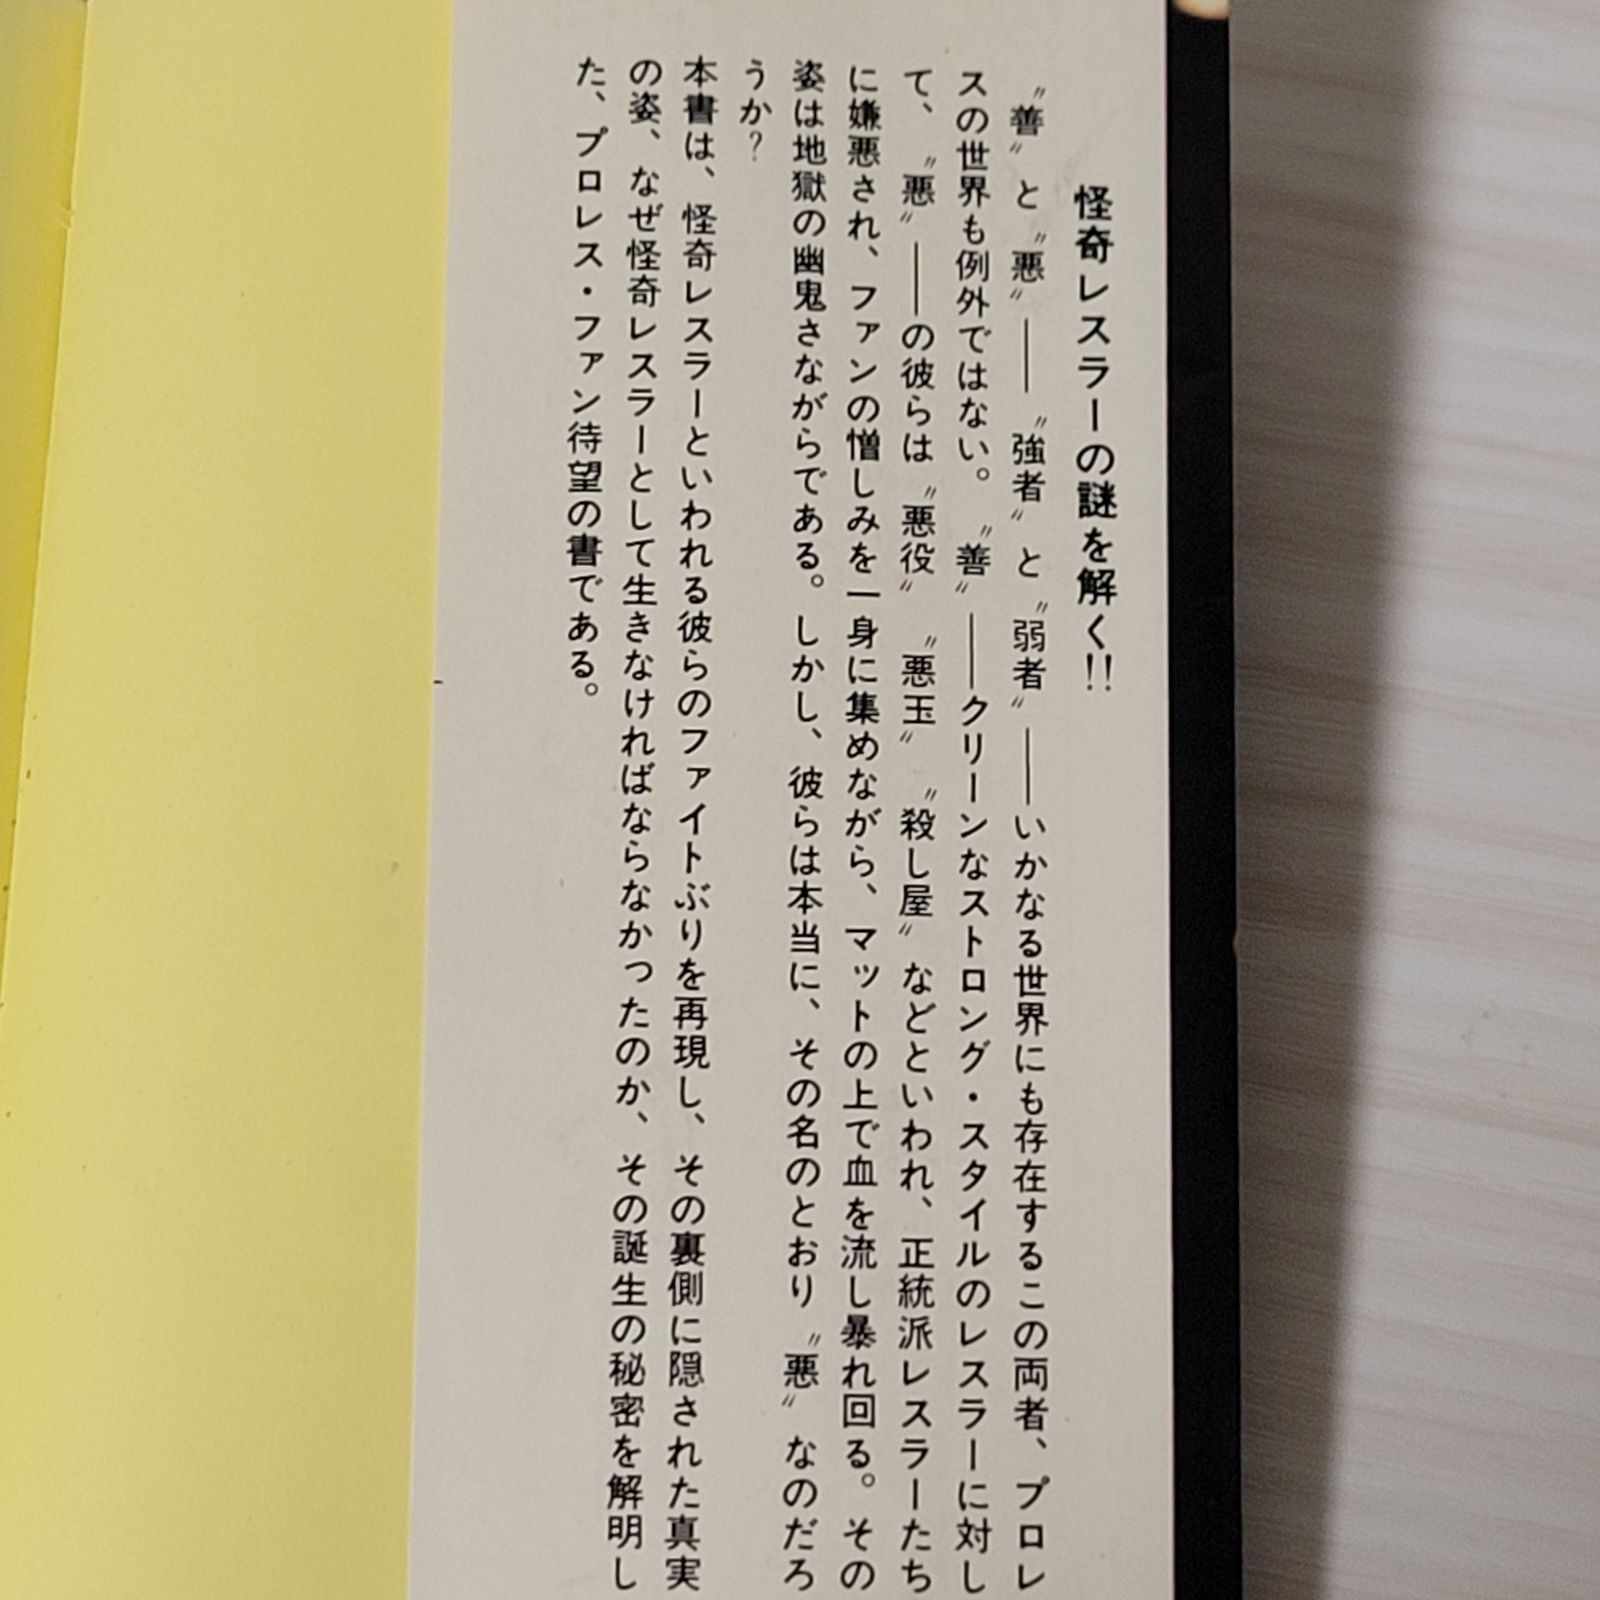 怪奇レスラーの謎を解く!!
〝善〟と〝悪〟――〝強者〟と〝弱者〟――いかなる世界にも存在するこの両者、プロレ
スの世界も例外ではない。〝善〟――クリーンなストロング・スタイルのレスラーに対し
て、〝悪〟――の彼らは〝悪役〟〝悪玉〟〝殺し屋〟などといわれ、正統派レスラーたち
に嫌悪され、ファンの憎しみを一身に集めながら、マットの上で血を流し暴れ回る。その
姿は地獄の幽鬼さながらである。しかし、彼らは本当に、その名のとおり〝悪〟なのだろ
うか?
本書は、怪奇レスラーといわれる彼らのファイトぶりを再現し、その裏側に隠された真実
の姿、なぜ怪奇レスラーとして生きなければならなかったのか、その誕生の秘密を解明し
た、プロレス・ファン待望の書である。